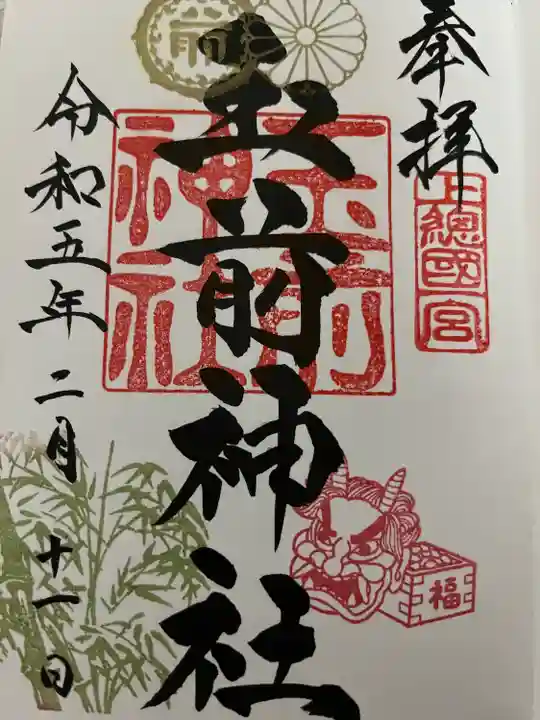 奉拝
上總國一宮
前
玉前神社
玉前神社
令和五年二月十一日
福